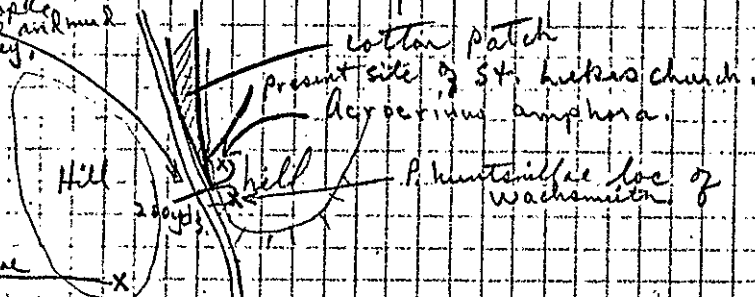 and mud
cotton patch
present site of St. Lukes church.
Agerocrinus amphora.
Hill
hill
P. huntsvillae loc of
Wachsmuth.
200 yds.
X